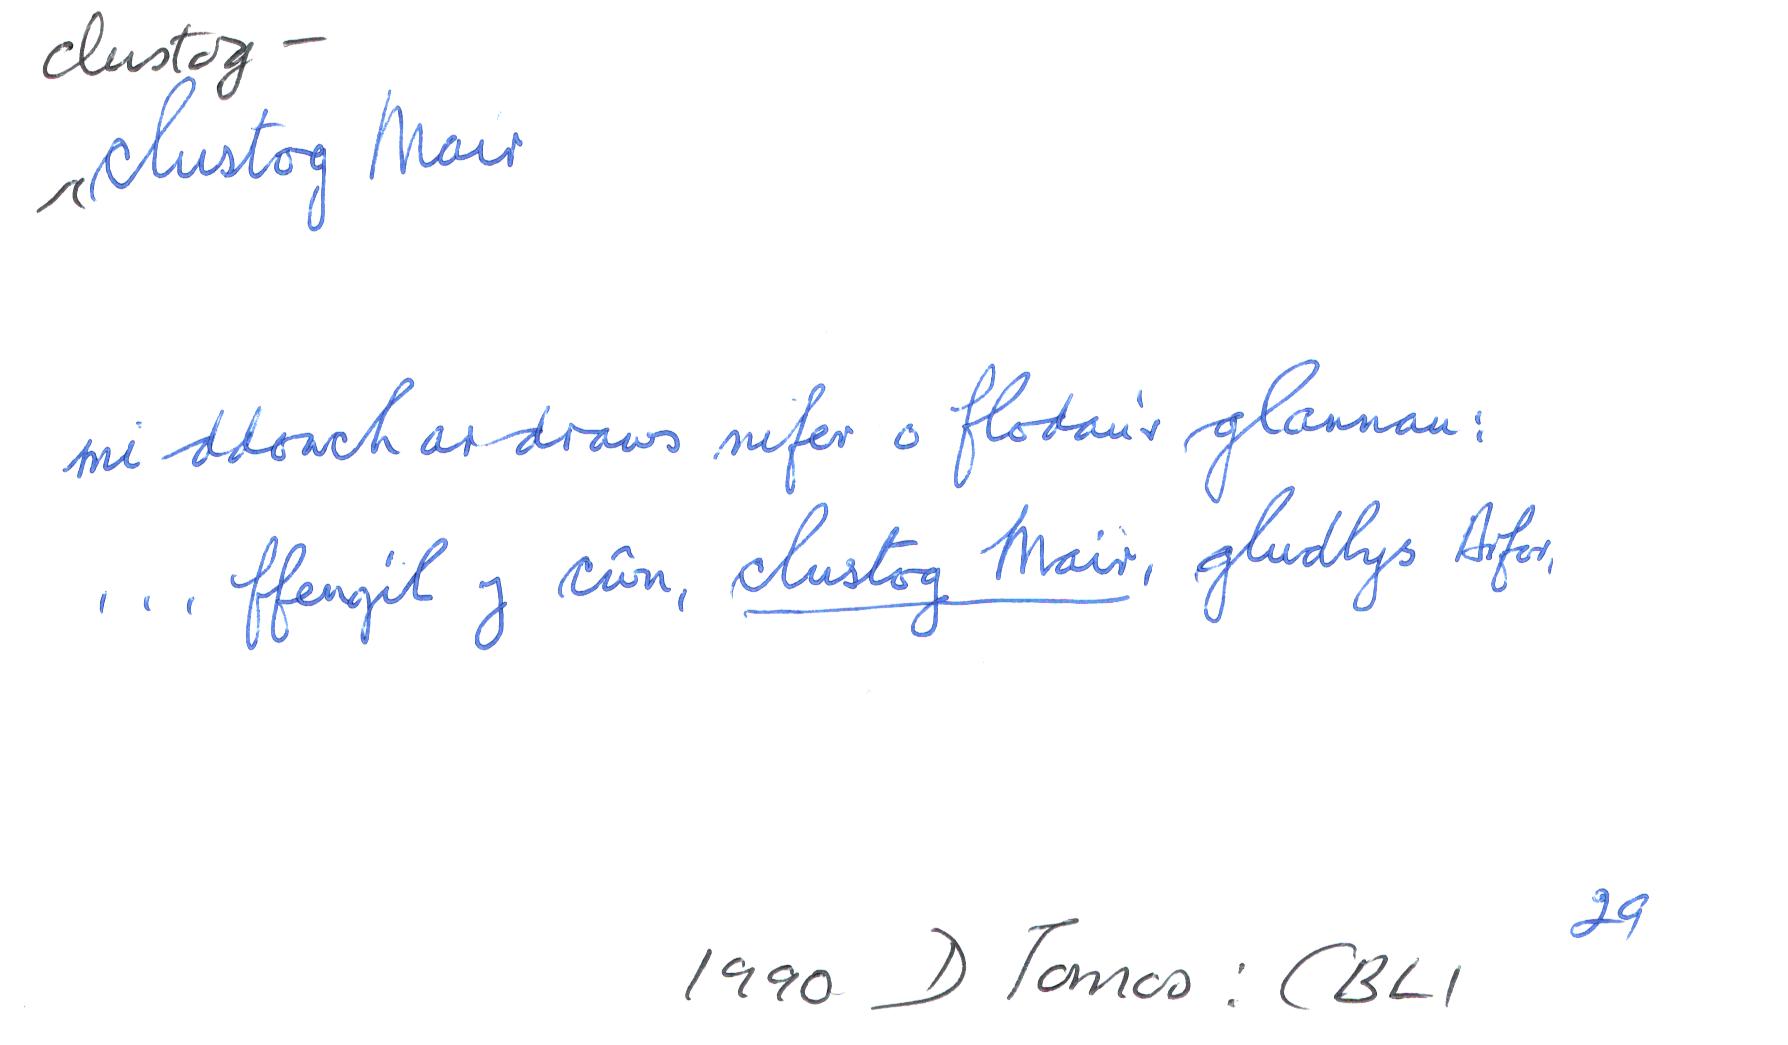 clustog –
clustog Mair
mi ddowch ar draws nifer o flodau'r glannau:
... ffengil y cŵn, clustog Mair, gludlys Arfor,
29
1990 D Tomos: CBLl